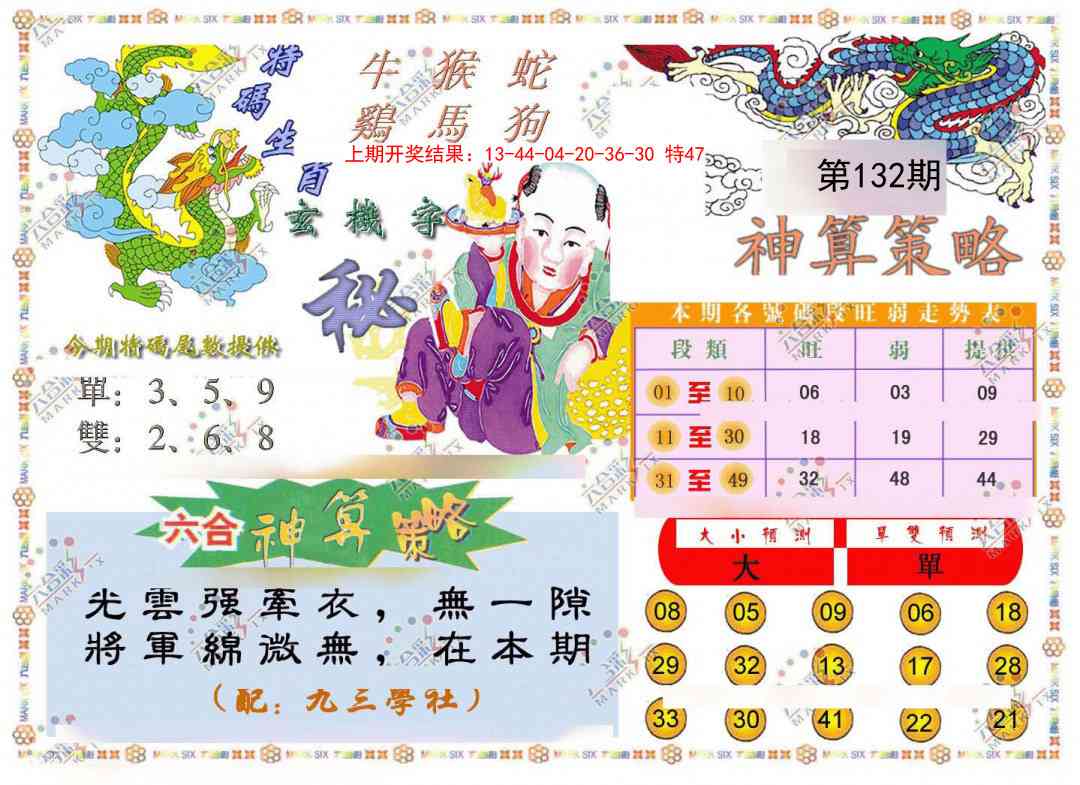 特碼生肖
牛 猴 蛇
鷄 馬 狗
上期开奖结果：13-44-04-20-36-30 特47
第132期
玄機字
秘
神算策略
今期特碼尾數提供
單：3、5、9
雙：2、6、8
本期各號碼段旺弱走勢表
段類 旺 弱 提供
01 至 10 06 03 09
11 至 30 18 19 29
31 至 49 32 48 44
六合神算策略
光雲强牽衣，無一隙
將軍綿微無，在本期
（配：九三學社）
大小預測 單雙預測
大 單
08 05 09 06 18
29 32 13 17 28
33 30 41 22 21